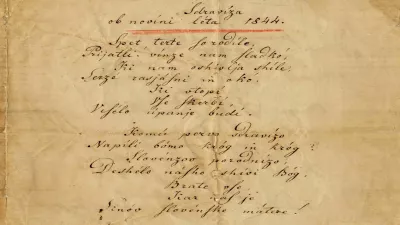 Sdravíza
ob novíni léta 1844.
Spet terte so rodíle,
Prijatli! vínze nam sladkó,
Ki nam oshivlja shíle,
Serzé rasjásni in okó,
Ki vtopí
Vse skerbí,
Veselo úpanje budí.
Komú pervo sdravízo
Napíli bómo króg in króg?
Slovenzov porodnízo
Deshelo násho shívi Bóg,
Brate vse
Kar nas je
Sinóv slovénske mátere!